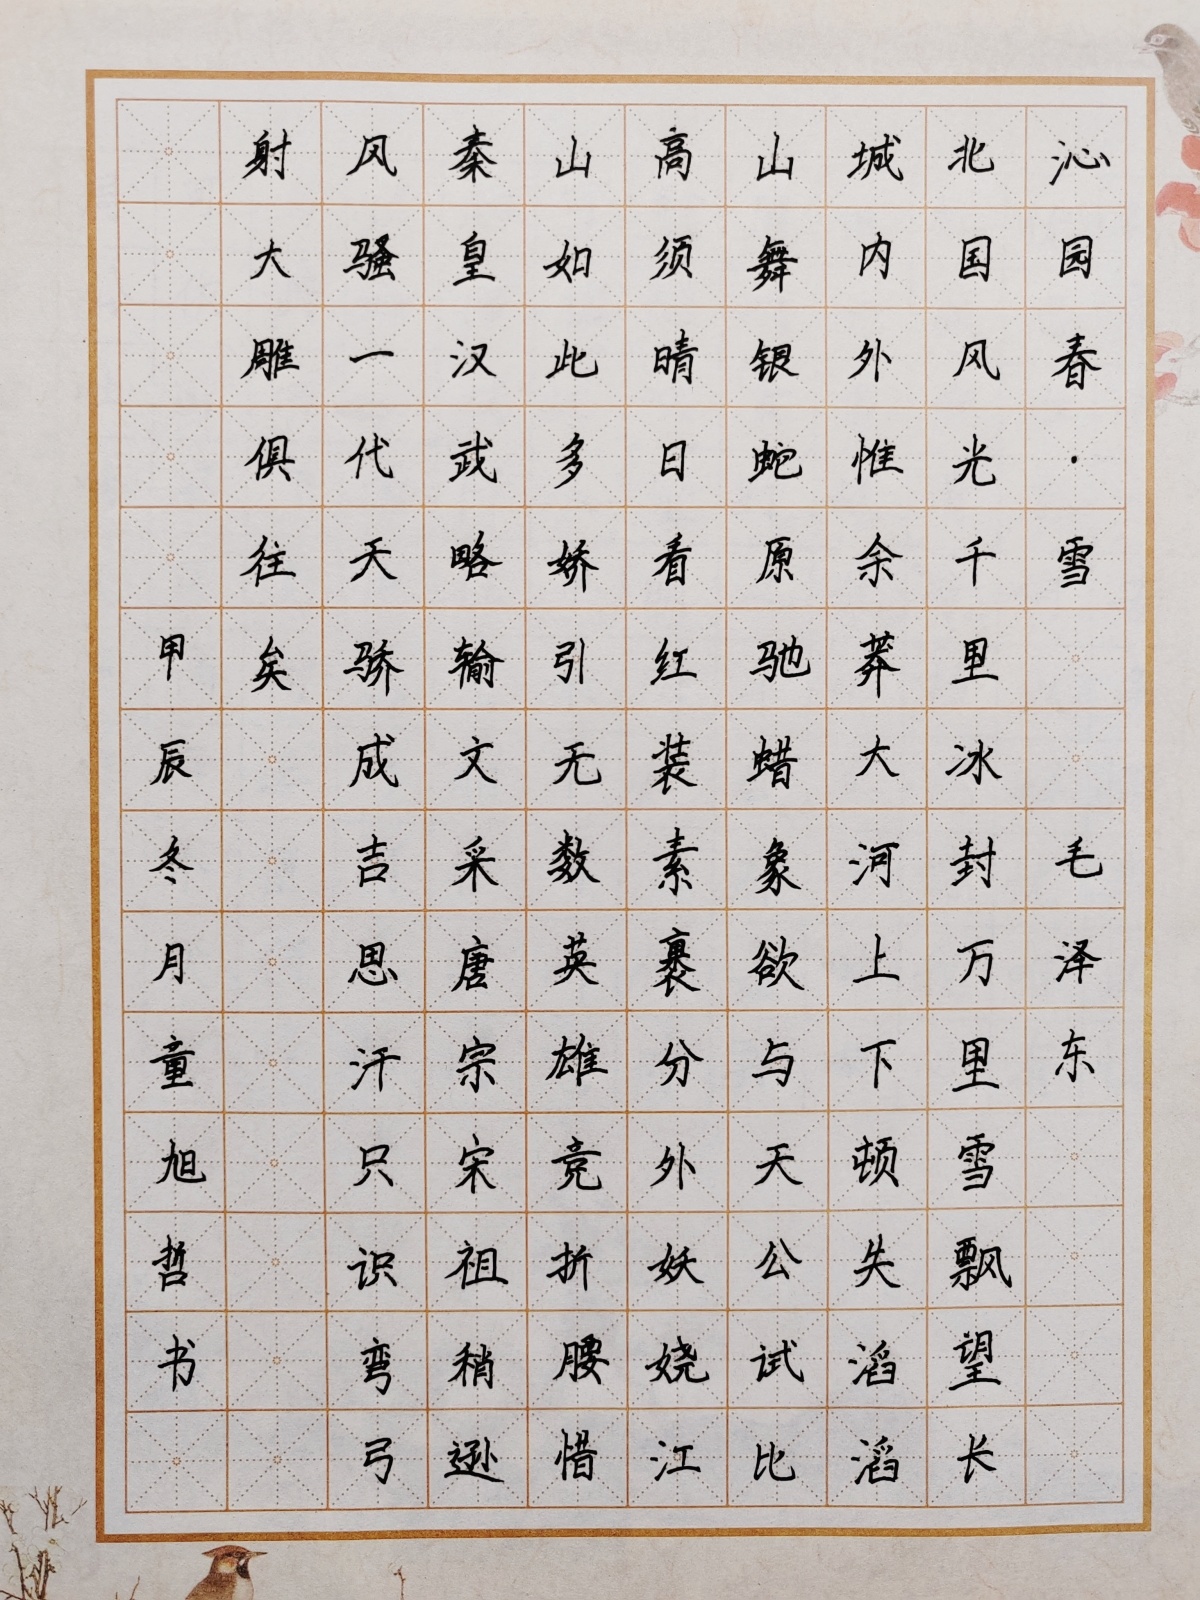 沁园春·雪 毛泽东
北国风光千里冰封万里雪飘望长
城内外惟余莽大河上下顿失滔滔
山舞银蛇原驰蜡象欲与天公试比
高须晴日看红装素裹分外妖娆江
山如此多娇引无数英雄竞折腰惜
秦皇汉武略输文采唐宗宋祖稍逊
风骚一代天骄成吉思汗只识弯弓
射大雕俱往矣
甲辰冬月童旭哲书